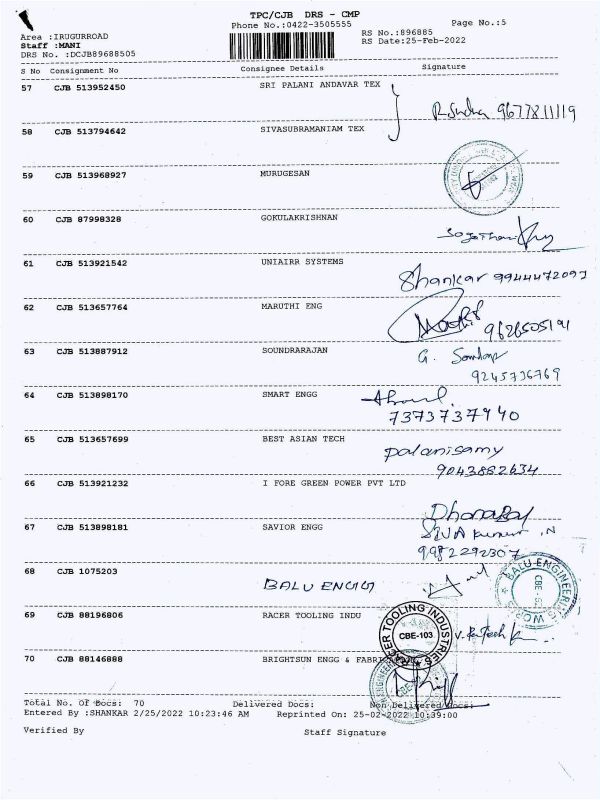 TPC/CJB DRS - CMP
Phone No.:0422-3505555
Page No.:5
Area :IRUGURROAD
Staff :MANI
DRS No. :DCJB89688505
RS No.:896885
RS Date:25-Feb-2022
S No Consignment No Consignee Details Signature
57 CJB 513952450 SRI PALANI ANDAVAR TEX
9677811119
58 CJB 513794642 SIVASUBRAMANIAM TEX
59 CJB 513968927 MURUGESAN
60 CJB 87998328 GOKULAKRISHNAN
61 CJB 513921542 UNIAIRR SYSTEMS
Shankar
62 CJB 513657764 MARUTHI ENG
63 CJB 513887912 SOUNDRARAJAN
9245736769
64 CJB 513898170 SMART ENGG
7373737940
65 CJB 513657699 BEST ASIAN TECH
palanisamy
9043882634
66 CJB 513921232 I FORE GREEN POWER PVT LTD
67 CJB 513898181 SAVIOR ENGG
9982292307
68 CJB 1075203
BALU ENGG
BALU ENGINEERING WORKS
69 CJB 88196806 RACER TOOLING INDU
RACER TOOLING INDUSTRIES
CBE-103
70 CJB 88146888 BRIGHTSUN ENGG & FABRI
Total No. Of Docs: 70 Delivered Docs: Non Delivered Docs:
Entered By :SHANKAR 2/25/2022 10:23:46 AM Reprinted On: 25-02-2022 10:39:00
Verified By Staff Signature